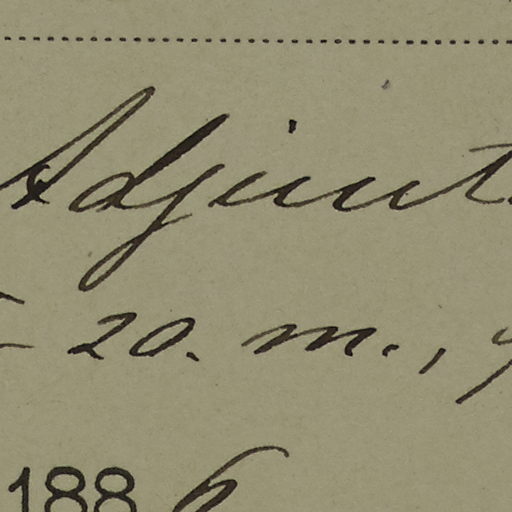 Adjunt
20. m.,
1886